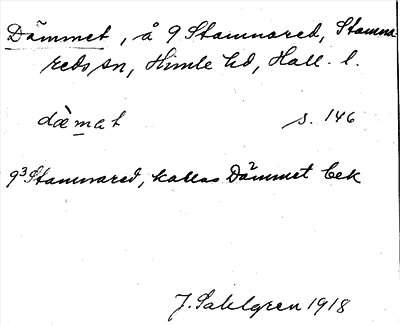 Dämmet, å 9 Stamnared, Stamna-
reds sn, Himle hd, Hall. l.
dæ̀mat s. 146
9³ Stamnared, kallas Dämmet bek
J. Sahlgren 1918